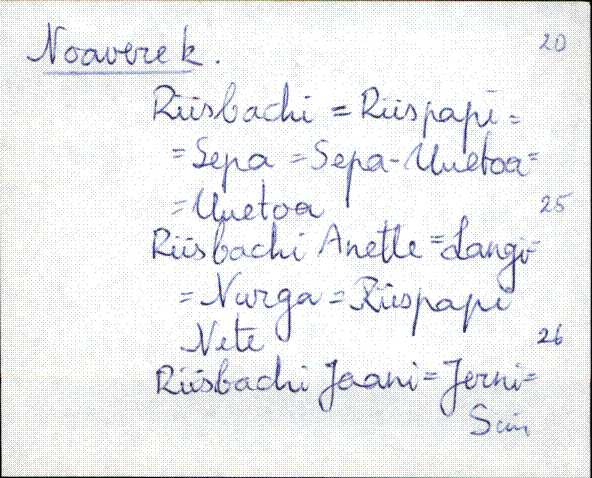 Noavere k. 20
Riisbachi = Riispapi =
= Sepa = Sepa-Uuetoa =
= Uuetoa 25
Riisbachi Anette = Langi-
= Nurga = Riispapi
Nete 26
Riisbachi Jaani = Jerni =